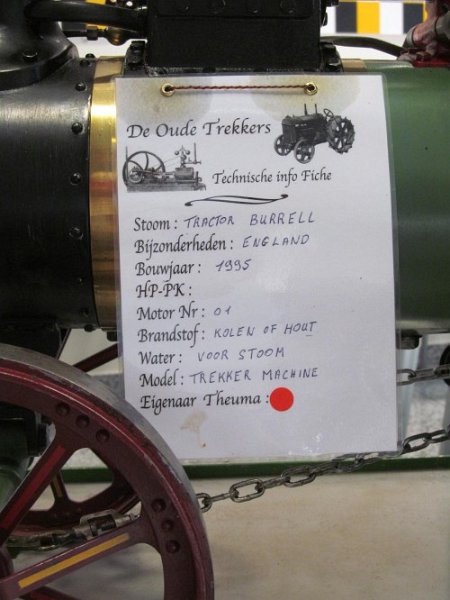 De Oude Trekkers
Technische info Fiche
Stoom : TRACTOR BURRELL
Bijzonderheden : ENGLAND
Bouwjaar : 1995
HP-PK :
Motor Nr : 01
Brandstof : KOLEN OF HOUT
Water : VOOR STOOM
Model : TREKKER MACHINE
Eigenaar Theuma :